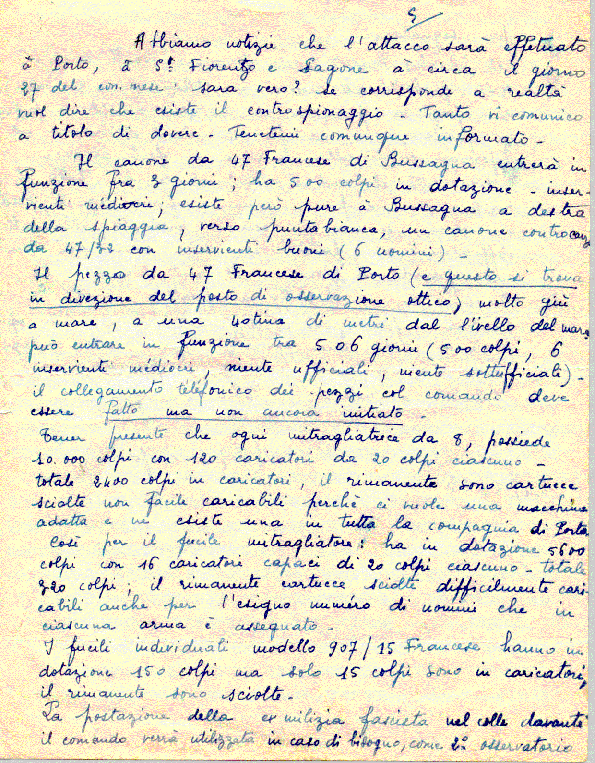 5
Abbiamo notizie che l'attacco sarà effetuato
à Porto, à St Fiorenzo e Sagone à circa il giorno
27 del corr. mese: sara vero? se corrisponde a realtà
vuol dire che esiste il controspionaggio - Tanto vi comunico
a titolo di dovere - Tenetemi comunque informato -
Il canone da 47 Francese di Bussagna entrerà in
funzione fra 3 giorni; ha 500 colpi in dotazione - inser-
vienti médiocri; esiste però pure à Bussagna a destra
della spiaggia, verso puntabianca, un canone controcarro
da 47/32 con inservienti buoni (6 uomini) -
Il pezzo da 47 Francese di Porto (e questo si trova
in direzione del posto di osservazione ottico) molto giù
a mare, a una 40tina di metri dal livello del mare
può entrare in funzione tra 5 o 6 giorni (500 colpi, 6
inservienti médiocri, niente ufficiali, niente sottufficiali) -
il collegamento teléfonico dei pezzi col comando deve
essere fatto ma non ancora initiato -
Tener presente che ogni mitragliatrice da 8, possiede
10.000 colpi con 120 caricatori da 20 colpi ciascuno -
totale 2400 colpi in caricatori, il rimanente sono cartucce
sciolte non facile caricabili perchè ci vuole una macchina
adatta e ne esiste una in tutta la compagnia di Porto
Cosi per il fucile mitragliatore: ha in dotazione 5600
colpi con 16 caricatori capaci di 20 colpi ciascuno - totali
320 colpi; il rimanente cartucce sciolte difficilmente cari-
cabili anche per l'esiguo numéro di uomini che in
ciascuna arma é assegnato -
I fucili individuali modello 907/15 Francese hanno in
dotazione 150 colpi ma solo 15 colpi sono in caricatori,
il rimanente sono sciolte -
La postazione della ex milizia fascista nel colle davanti
il comando verrà utilizzata in caso di bisogno, come 2° osservatorio